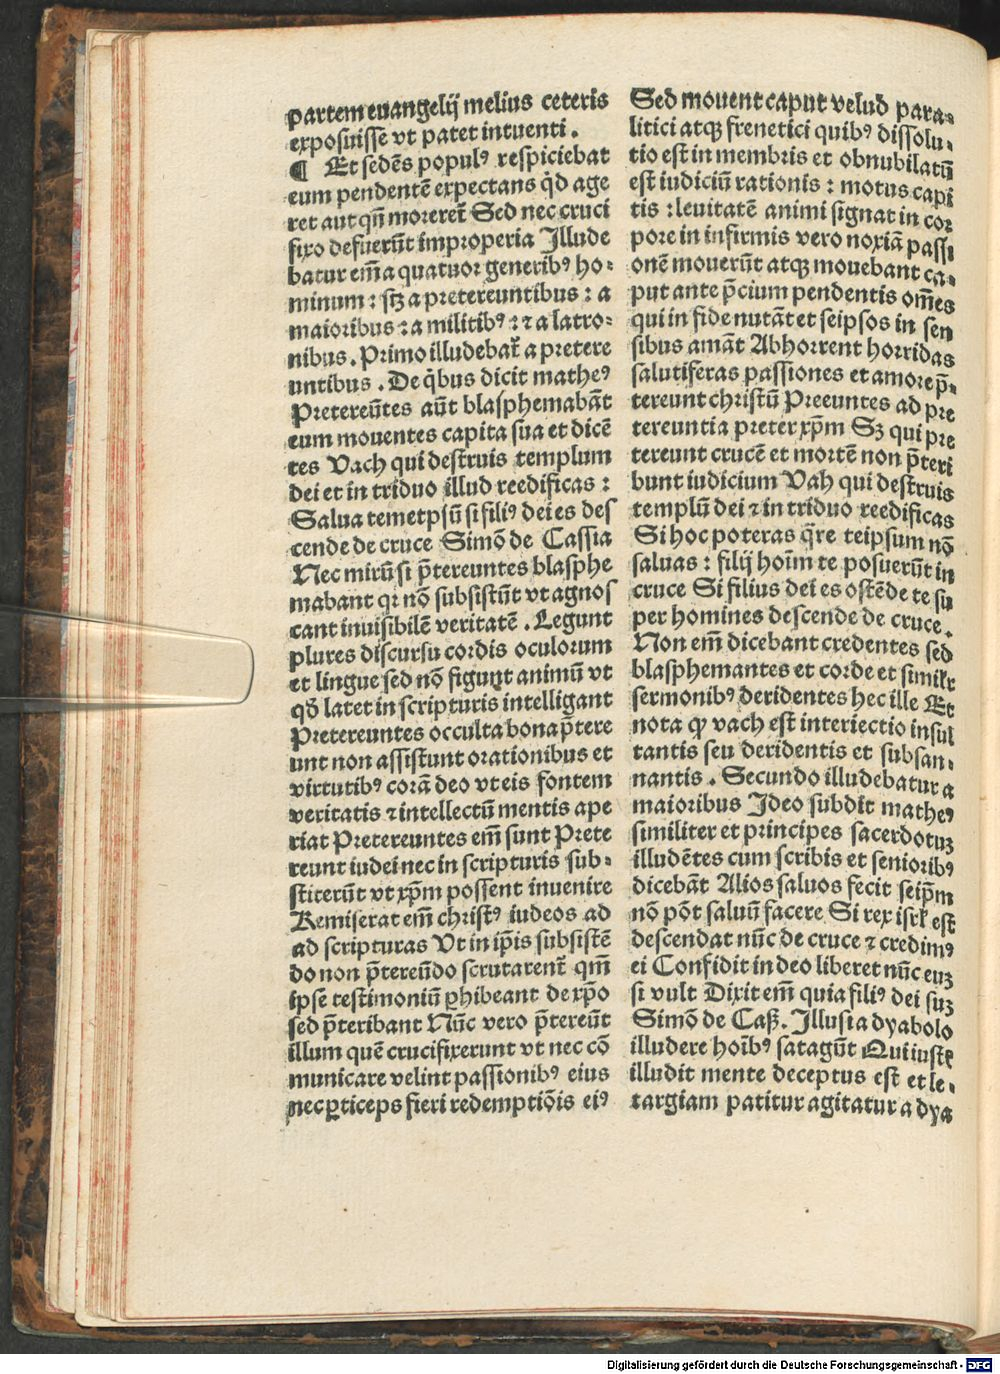 partem euangelij melius ceteris
exposuisse vt patet intuenti .
¶ Et sedēs populꝰ respiciebat
eum pendentē expectans qͥd age
ret aut qn̄ moreret᷑ Sed nec cruci
fixo defuerūt improperia Illude
batur em̄ a quatuor generibꝰ ho⸗
minum : sꝫ a pretereuntibus : a
maioribus : a militibꝰ : ⁊ a latro⸗
nibus . Primo illudebat᷑ a pretere
untibus . De qͥbus dicit matheꝰ
Pretereūtes aūt blasphemabāt
eum mouentes capita sua et dicē
tes Vach qui destruis templum
dei et in triduo illud reedificas :
Salua temetpsū si filiꝰ dei es des
cende de cruce Simō de Cassia
Nec mirū si p̄tereuntes blasphe
mabant qꝛ nō subsistūt vt agnos
cant inuisibilē veritatē . Legunt
plures discursu cordis oculorum
et lingue sed nō figunt animū vt
qd̄ latet in scripturis intelligant
Pretereuntes occulta bona p̄tere
unt non assistunt orationibus et
virtutibꝰ corā deo vt eis fontem
veritatis ⁊ intellectū mentis ape
riat Pretereuntes em̄ sunt Prete
reunt iudei nec in scripturis sub⸗
stiterūt vt xp̄m possent inuenire
Remiserat em̄ christꝰ iudeos ad
ad scripturas Vt in ip̄is subsistē
do non p̄tereūdo scrutarent᷑ qm̄
ipse testimoniū ꝑhibeant de xp̄o
sed p̄teribant Nūc vero p̄tereūt
illum quē crucifixerunt vt nec cō
municare velint passionibꝰ eius
nec ꝑticeps fieri redemptiōis eiꝰ
Sed mouent caput velud para⸗
litici atqꝫ frenetici quibꝰ dissolu⸗
tio est in membris et obnubilatū
est iudiciū rationis : motus capi
tis : leuitatē animi signat in cor
pore in infirmis vero noxiā passi
onē mouerūt atqꝫ mouebant ca⸗
put ante p̄cium pendentis om̄es
qui in fide nutāt et seipsos in sen
sibus amāt Abhorrent horridas
salutiferas passiones et amore p̄⸗
tereunt christū Preeuntes ad pre
tereuntia preter xp̄m Sꝫ qui pre
tereunt crucē et mortē non p̄teri
bunt iudicium Vah qui destruis
templū dei ⁊ in triduo reedificas
Si hoc poteras qͣre teipsum nō
saluas : filij hoīm te posuerūt in
cruce Si filius dei es ostēde te su
per homines descende de cruce .
Non em̄ dicebant credentes sed
blasphemantes et corde et similꝛ
sermonibꝰ deridentes hec ille Et
nota qꝫ vach est interiectio insul
tantis seu deridentis et subsan⸗
nantis . Secundo illudebatur a
maioribus Ideo subdit matheꝰ
similiter et principes sacerdotuꝫ
illudētes cum scribis et senioribꝰ
dicebāt Alios saluos fecit seip̄m
nō pōt saluū facere Si rex isrl̄ est
descendat nūc de cruce ⁊ credimꝰ
ei Confidit in deo liberet nūc euꝫ
si vult Dixit em̄ quia filiꝰ dei suꝫ
Simō de Caß . Illusi a dyabolo
illudere hoībꝰ satagūt Qui iuste
illudit mente deceptus est et le⸗
targiam patitur agitatur a dya
Digitalisierung gefördert durch die Deutsche Forschungsgemeinschaft - DFG